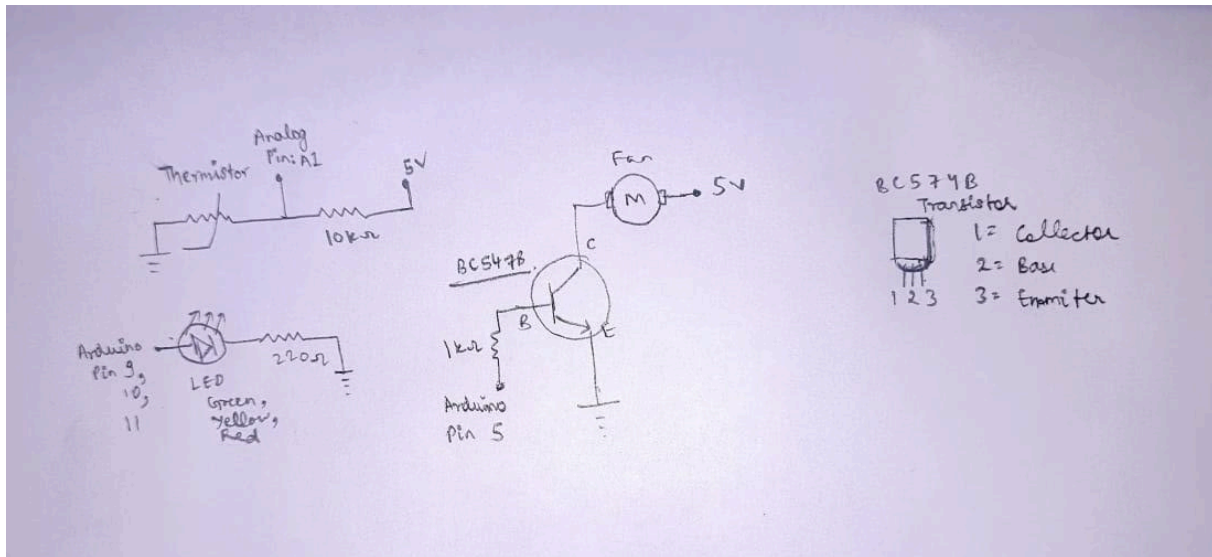 Thermistor
Analog
Pin: A1
5V
10kΩ
Arduino
Pin 9,
10,
11
LED
Green,
Yellow,
Red
220Ω
Fan
M
5V
BC547B.
C
B
E
1kΩ
Arduino
Pin 5
BC574B
Transistor
1 2 3
1= Collector
2= Base
3= Emmiter